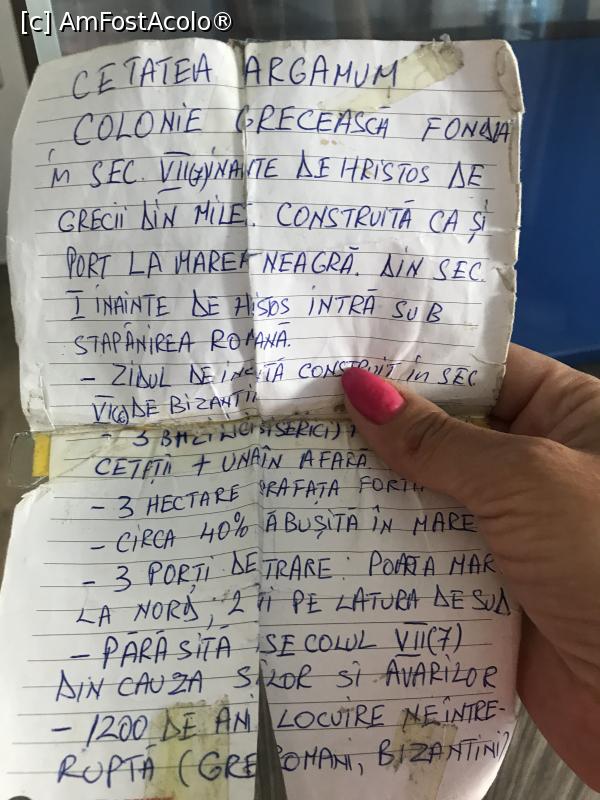 [c] AmFostAcolo®
CETATEA ARGAMUM
COLONIE GRECEASCĂ FONDA
ÎN SEC. VII(7) ÎNAINTE DE HRISTOS DE
GRECII DIN MILET. CONSTRUITĂ CA ȘI
PORT LA MAREA NEAGRĂ. DIN SEC.
I INAINTE DE INTRĂ SUB
STAPÂNIREA ROMANĂ.
- ZIDUL DE INCINTĂ CONSTRUIT în SEC
VI(6) DE BIZANTINI
- 3
CETĂȚII + UNA ÎN AFARĂ
- 3 HECTARE
- CIRCA 40% ĂBUȘITĂ ÎN MARE
- 3 PORȚI DE TRARE: POARTA MAR
LA NORD; 2 ȚI PE LATURA DE SUD
- PĂRĂSITĂ SECOLUL VII(7)
DIN CAUZA S LOR SI AVARILOR
- 1200 DE ANI LOCUIRE NEÎNTRE-
RUPTĂ (GRE ROMANI, BIZANTINI)